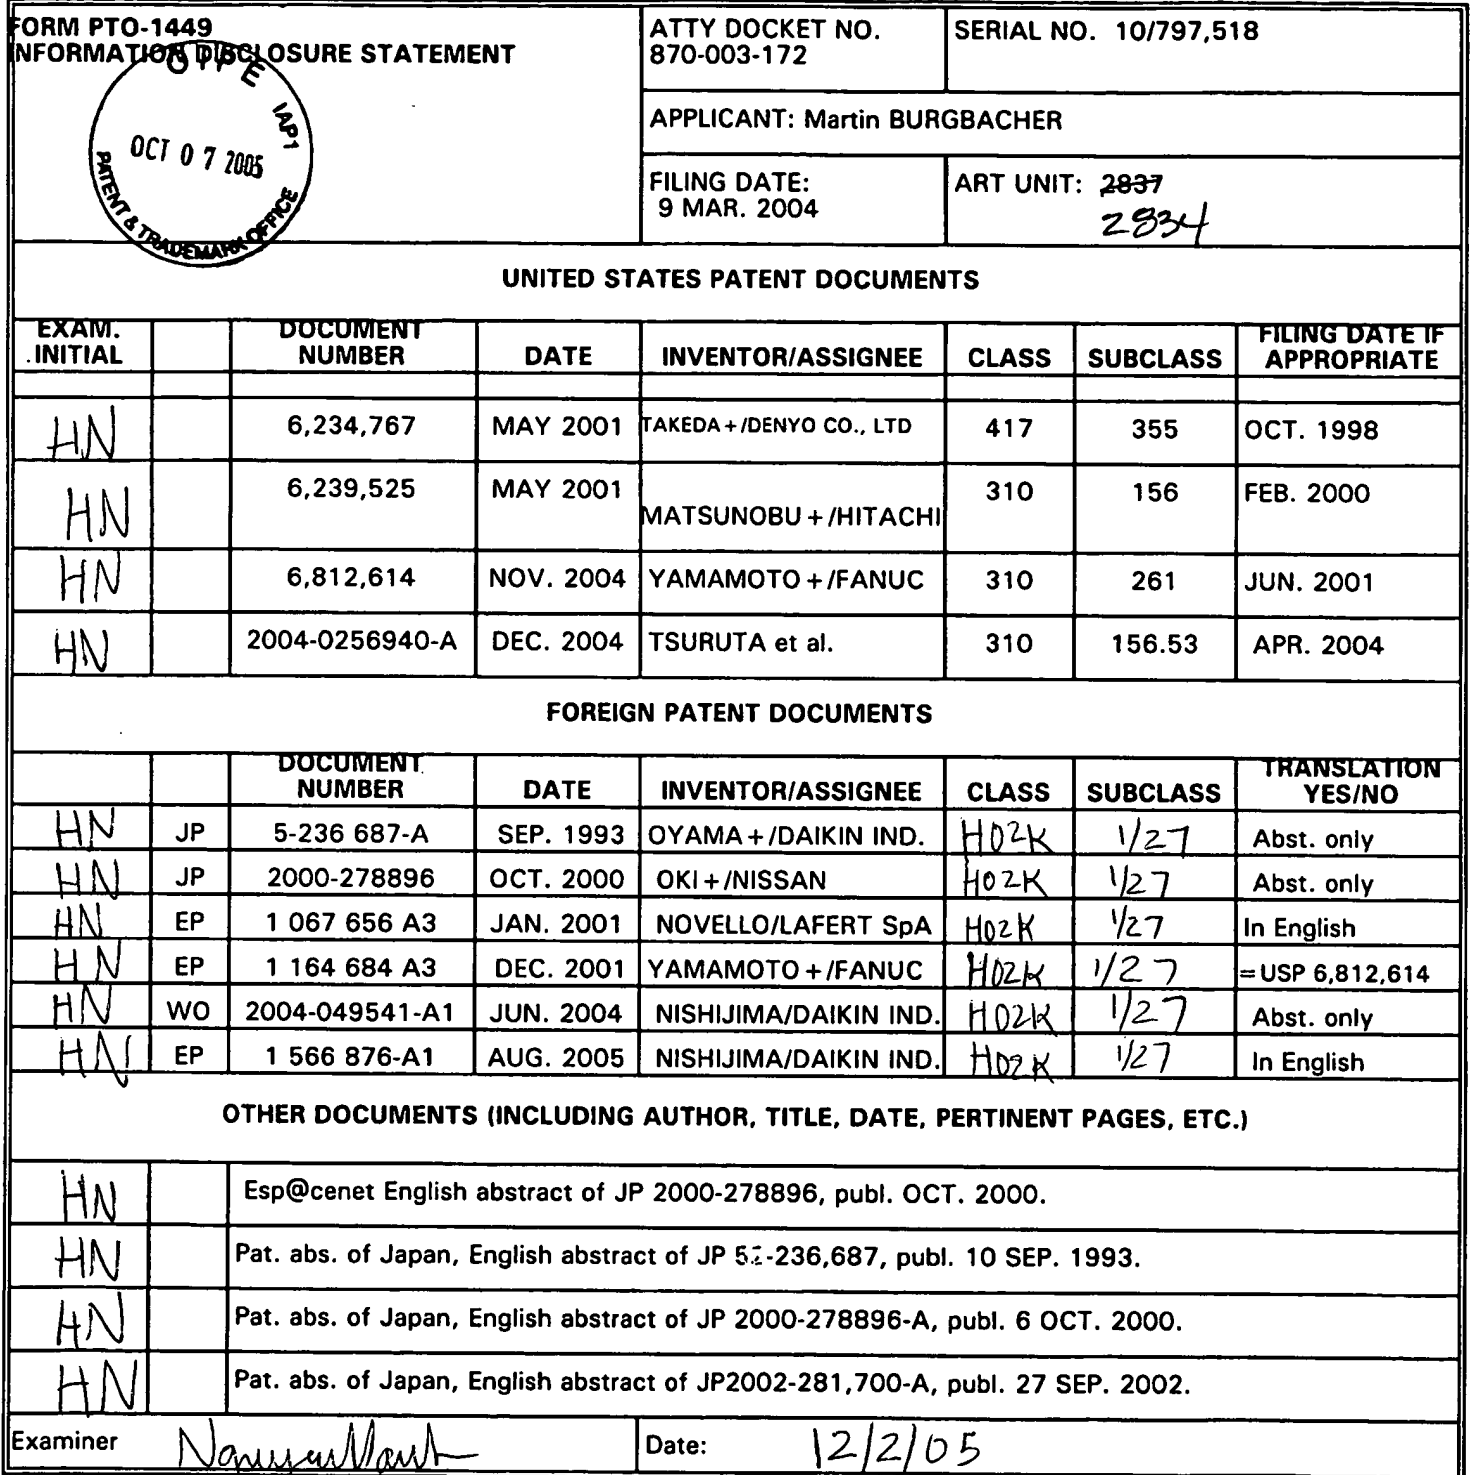 FORM PTO-1449
INFORMATION DISCLOSURE STATEMENT
OIPE IAP1
OCT 07 2005
PATENT & TRADEMARK OFFICE
ATTY DOCKET NO.
870-003-172
SERIAL NO. 10/797,518
APPLICANT: Martin BURGBACHER
FILING DATE:
9 MAR. 2004
ART UNIT: 2837
2834
UNITED STATES PATENT DOCUMENTS
EXAM. INITIAL DOCUMENT NUMBER DATE INVENTOR/ASSIGNEE CLASS SUBCLASS FILING DATE IF APPROPRIATE
HN 6,234,767 MAY 2001 TAKEDA+/DENYO CO., LTD 417 355 OCT. 1998
HN 6,239,525 MAY 2001 MATSUNOBU+/HITACHI 310 156 FEB. 2000
HN 6,812,614 NOV. 2004 YAMAMOTO+/FANUC 310 261 JUN. 2001
HN 2004-0256940-A DEC. 2004 TSURUTA et al. 310 156.53 APR. 2004
FOREIGN PATENT DOCUMENTS
DOCUMENT NUMBER DATE INVENTOR/ASSIGNEE CLASS SUBCLASS TRANSLATION YES/NO
HN JP 5-236 687-A SEP. 1993 OYAMA+/DAIKIN IND. H02K 1/27 Abst. only
HN JP 2000-278896 OCT. 2000 OKI+/NISSAN H02K 1/27 Abst. only
HN EP 1 067 656 A3 JAN. 2001 NOVELLO/LAFERT SpA H02K 1/27 In English
HN EP 1 164 684 A3 DEC. 2001 YAMAMOTO+/FANUC H02K 1/27 =USP 6,812,614
HN WO 2004-049541-A1 JUN. 2004 NISHIJIMA/DAIKIN IND. H02K 1/27 Abst. only
HN EP 1 566 876-A1 AUG. 2005 NISHIJIMA/DAIKIN IND. H02K 1/27 In English
OTHER DOCUMENTS (INCLUDING AUTHOR, TITLE, DATE, PERTINENT PAGES, ETC.)
HN Esp@cenet English abstract of JP 2000-278896, publ. OCT. 2000.
HN Pat. abs. of Japan, English abstract of JP -236,687, publ. 10 SEP. 1993.
HN Pat. abs. of Japan, English abstract of JP 2000-278896-A, publ. 6 OCT. 2000.
HN Pat. abs. of Japan, English abstract of JP2002-281,700-A, publ. 27 SEP. 2002.
Examiner Date: 12/2/05